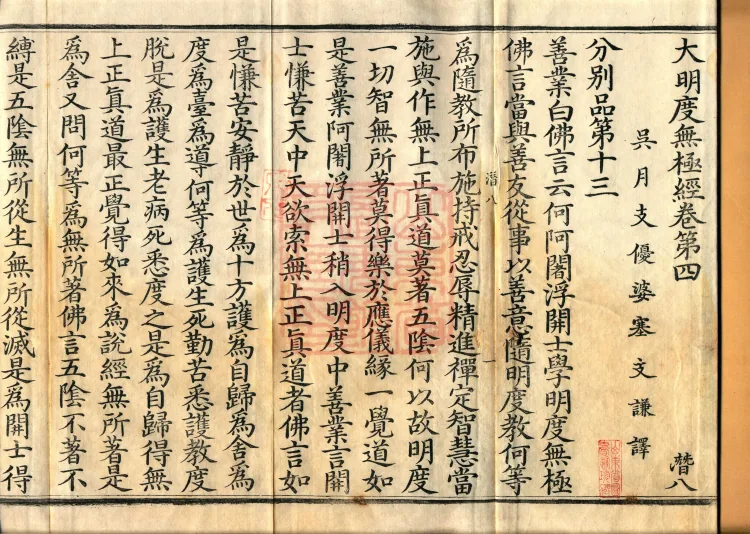 大明度無極經卷第四 潛八
吳月支優婆塞支謙譯
分別品第十三
善業白佛言云何阿闍浮開士學明度無極
佛言當與善友從事以善意隨明度教何等
潛八 一
爲隨教所布施持戒忍辱精進禪定智慧當
施與作無上正眞道莫著五陰何以故明度
一切智無所著莫得樂於應儀緣一覺道如
是善業阿闍浮開士稍入明度中善業言開
士慊苦天中天欲索無上正眞道者佛言如
是慊苦安靜於世爲十方護爲自歸爲舍爲
度爲臺爲導何等爲護生死勤苦悉護教度
脫是爲護生老病死悉度之是爲自歸得無
上正眞道最正覺得如來爲說經無所著是
爲舍又問何等爲無所著佛言五陰不著不
縛是五陰無所從生無所從滅是爲開士得